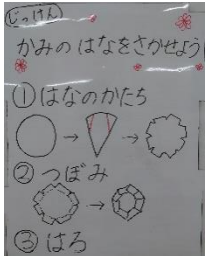 じっけん
かみの はなをさかせよう
①はなのかたち
②つぼみ
③はろ